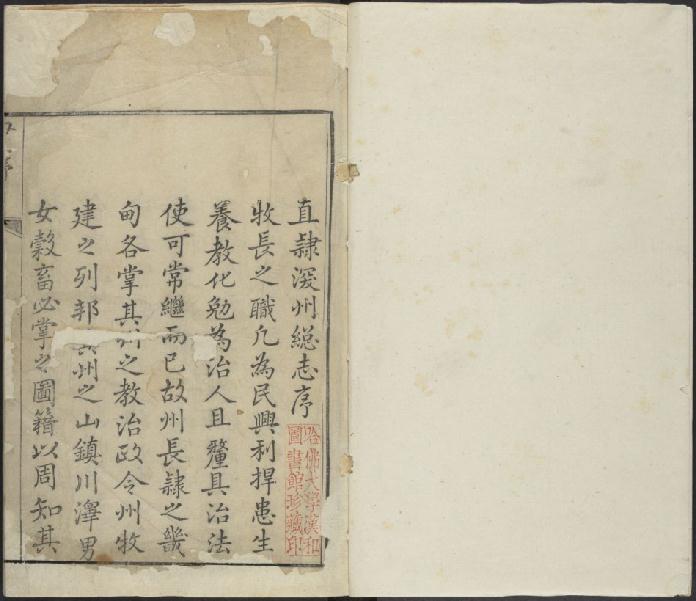 直隷深州總志序
牧長之職凡為民興利捍患生
養教化勉為治人且釐具治法
使可常繼而已故州長隷之畿
甸各掌其州之教治政令州牧
建之列邦其州之山鎮川澤男
女穀畜必掌之圖籍以周知其
哈佛大學漢和
圖書館珍藏印